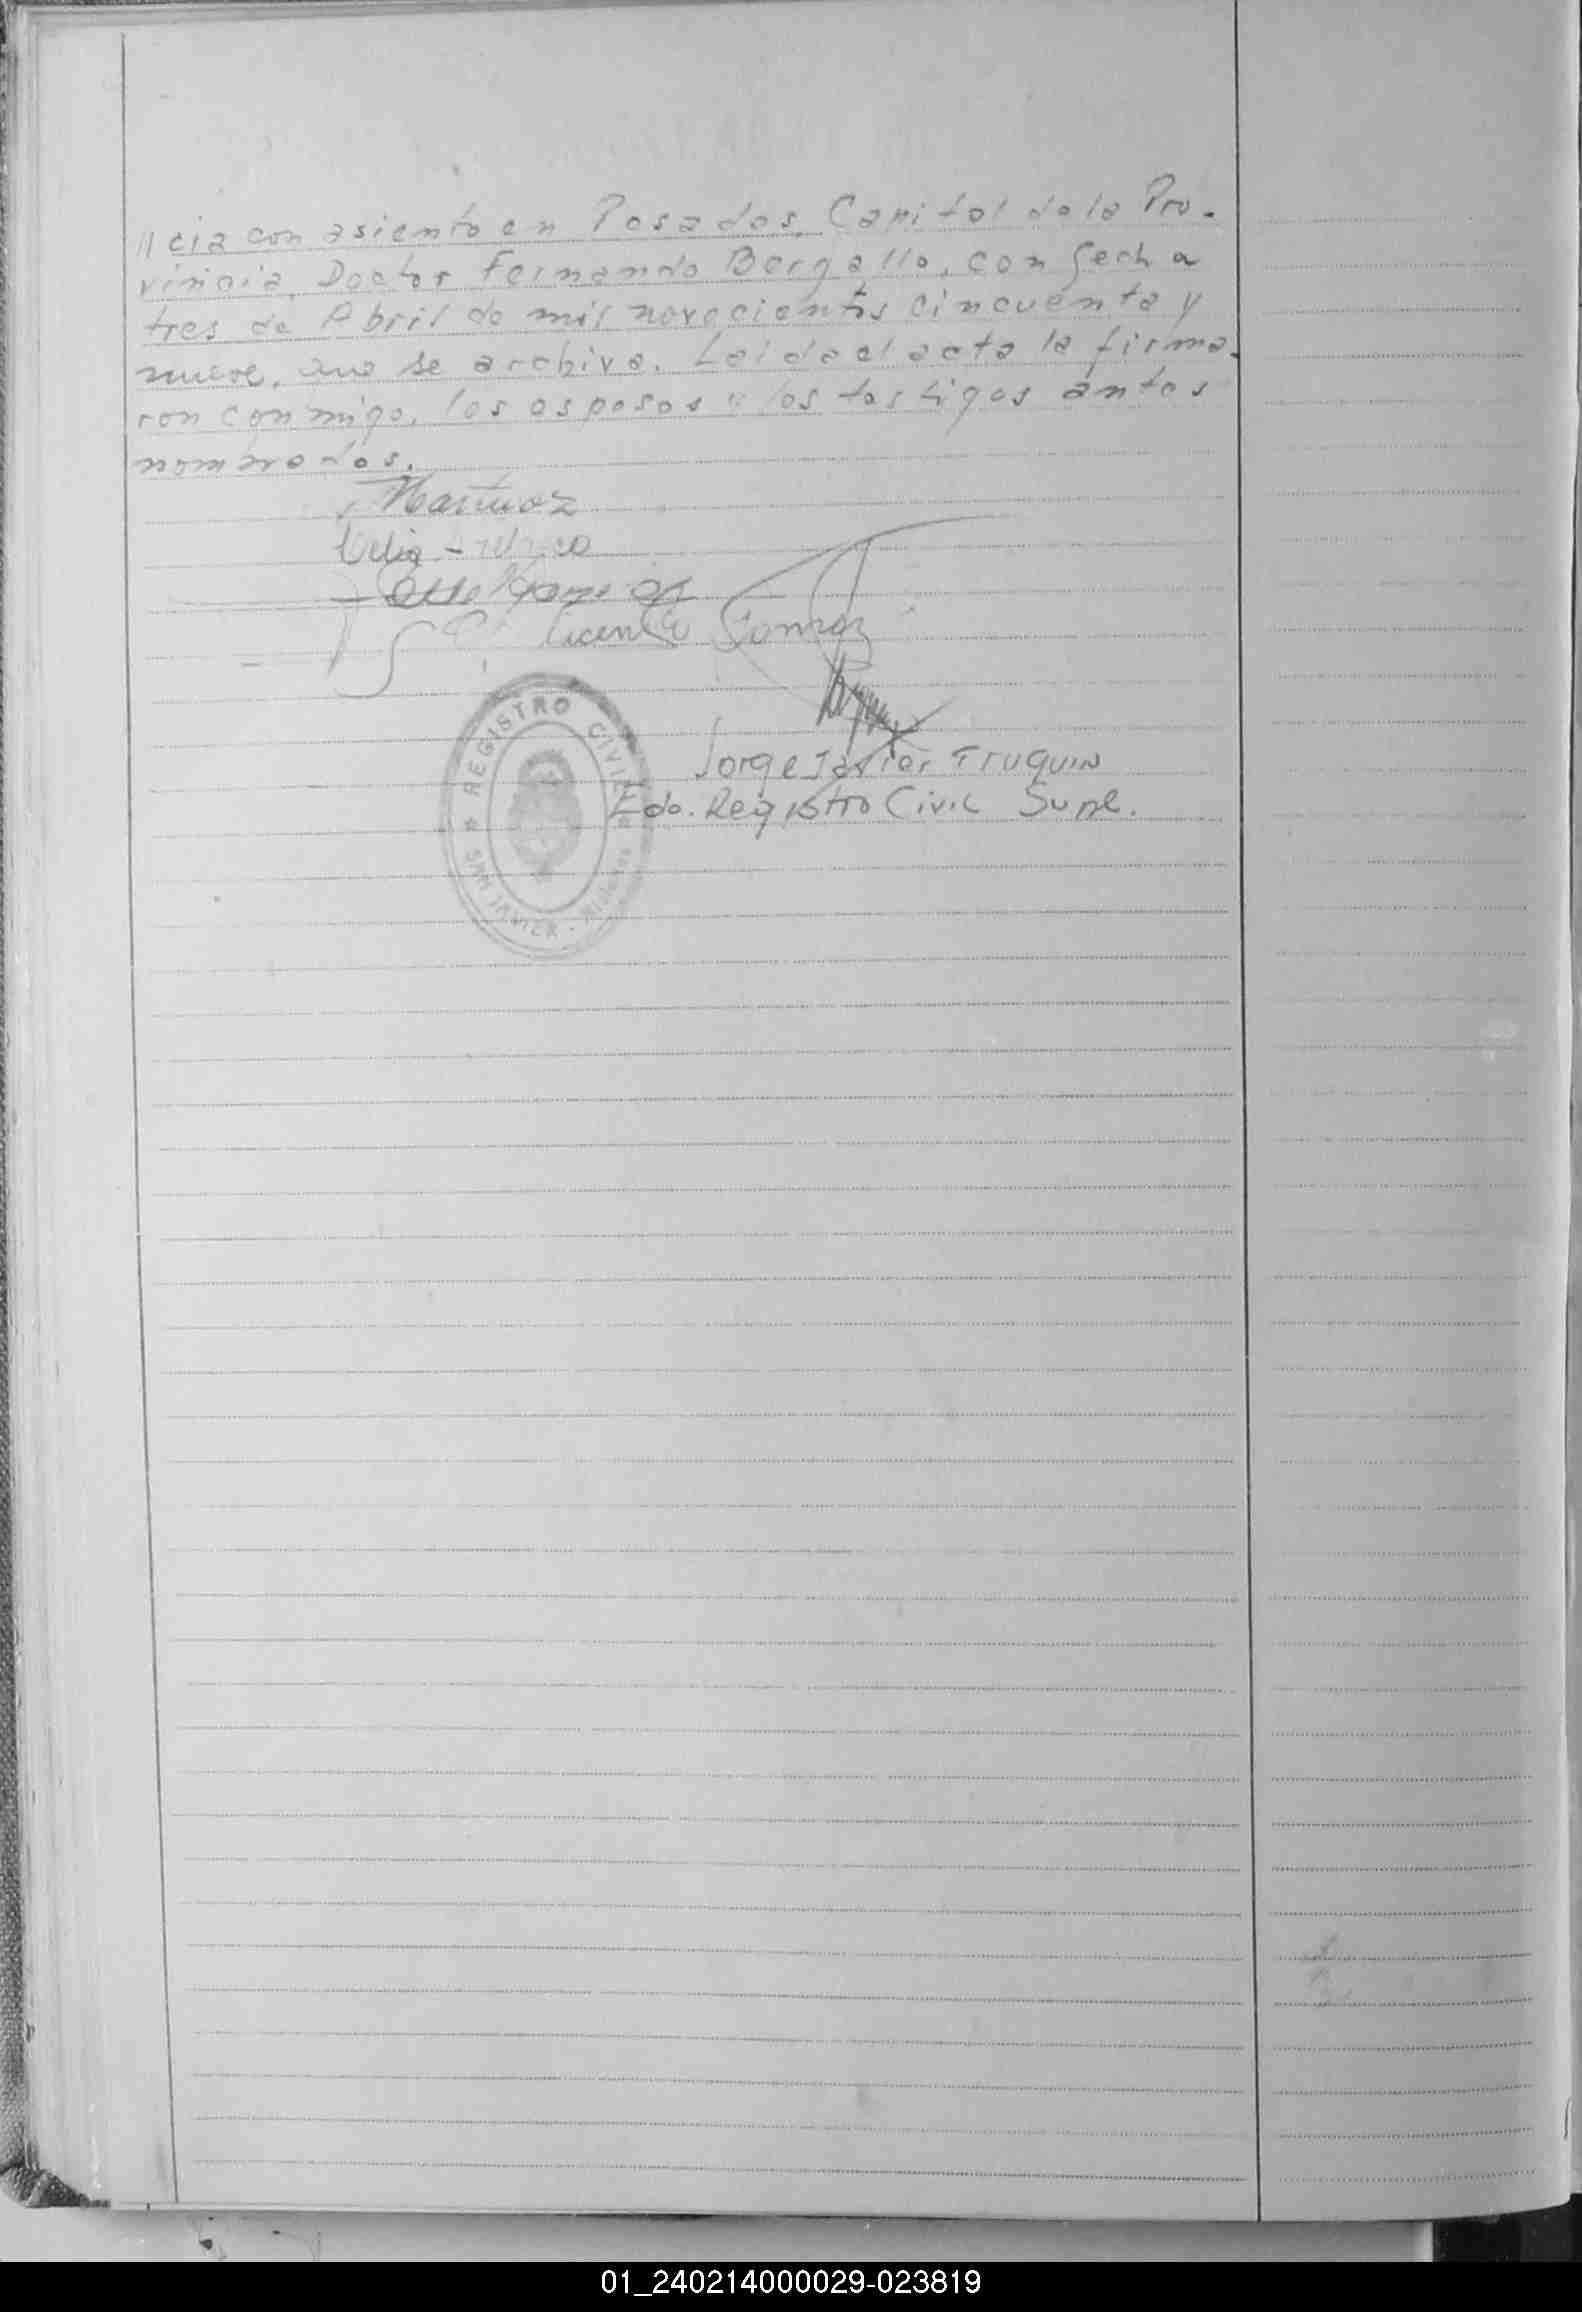 // cia con asiento en Posadas, Capital de la Pro-
vincia, Doctor Fernando Bergallo, con fecha
tres de Abril de mil novecientos cincuenta y
nueve, que se archiva. Leida el acta la firma-
ron conmigo, los esposos y los testigos antes
nombrados.
Martinez
Celia
Vicente Gomez
REGISTRO CIVIL
SAN JAVIER - Misiones
Jorge Javier Truquin
Edo. Registro Civil Supl.
01_240214000029-023819